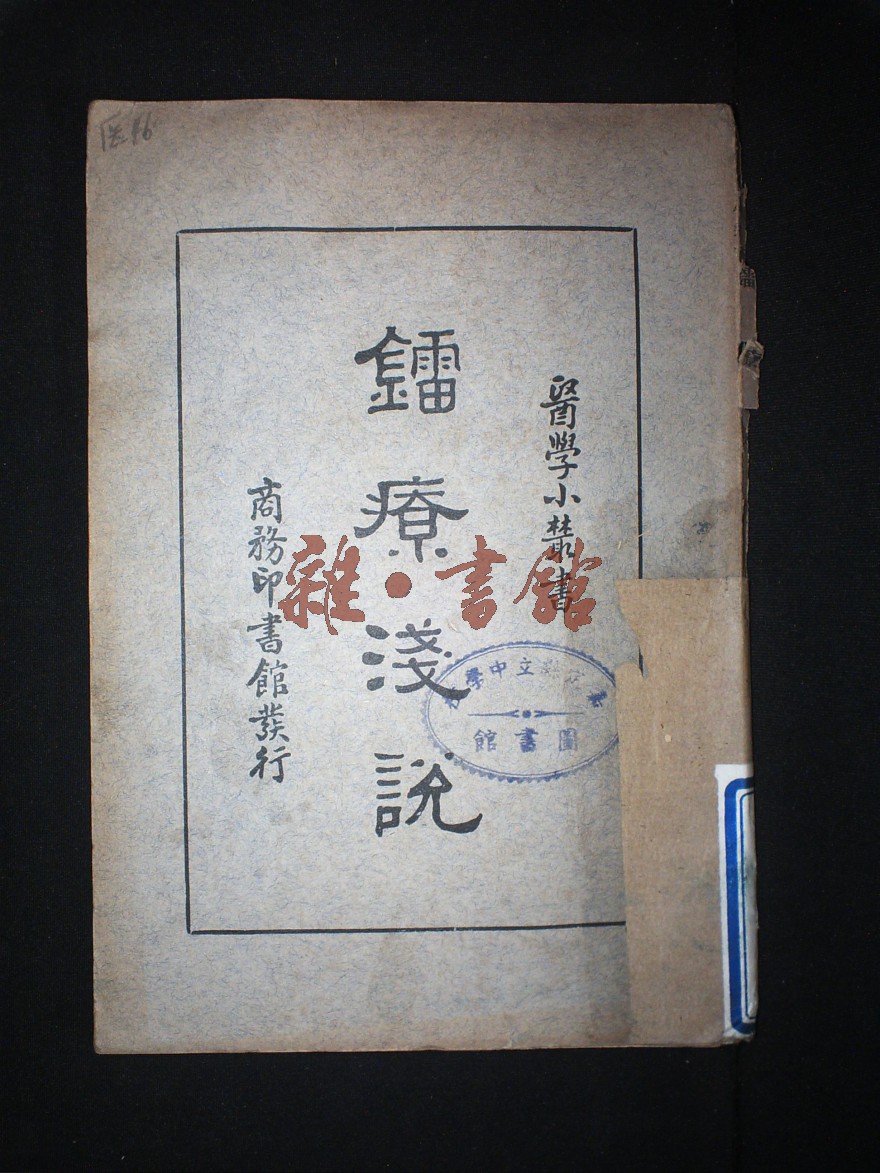 醫學小叢書
鐳療淺説
商務印書館發行
雜·書館
立中學
圖書館
医46